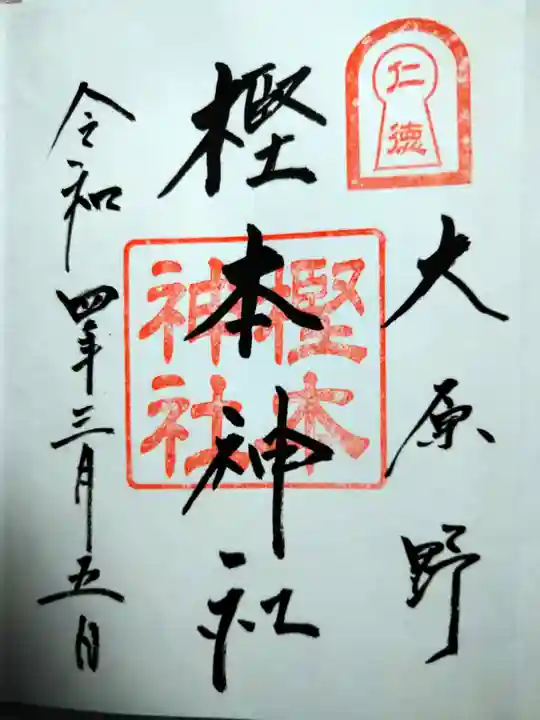 仁徳
大原野
樫本神社
樫本
神社
令和四年三月五日